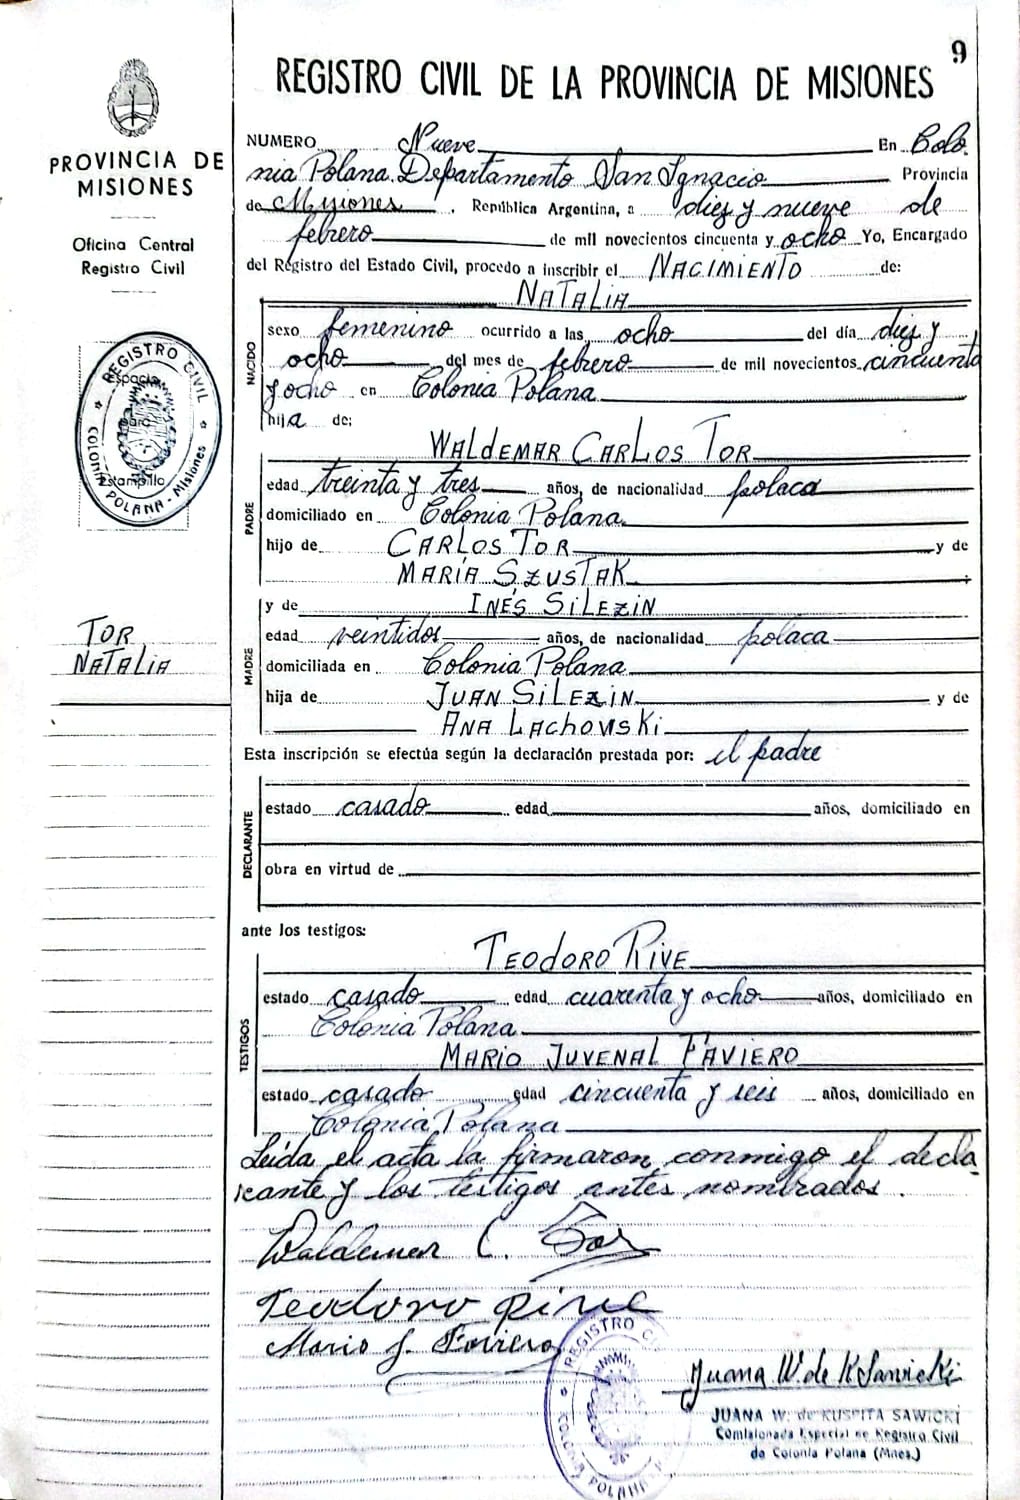 9
REGISTRO CIVIL DE LA PROVINCIA DE MISIONES
PROVINCIA DE
MISIONES
Oficina Central
Registro Civil
REGISTRO CIVIL
COLONIA POLANA - Misiones
Espacio
para
Estampilla
TOR
NATALIA
NUMERO Nueve En Colo
nia Polana. Departamento San Ignacio Provincia
de Misiones. República Argentina, a diez y nueve de
febrero de mil novecientos cincuenta y ocho Yo, Encargado
del Registro del Estado Civil, procedo a inscribir el NACIMIENTO de:
NATALIA
NACIDO
sexo femenino ocurrido a las ocho del día diez y
ocho del mes de febrero de mil novecientos cincuenta
y ocho en Colonia Polana
hija de:
WALDEMAR CARLOS TOR
PADRE
edad treinta y tres años, de nacionalidad polaca
domiciliado en Colonia Polana.
hijo de CARLOS TOR y de
MARÍA SZUSTAK
y de INÉS SILEZIN
MADRE
edad veintidos años, de nacionalidad polaca
domiciliada en Colonia Polana
hija de JUAN SILEZIN y de
ANA LACHOVSKI
Esta inscripción se efectúa según la declaración prestada por: el padre
DECLARANTE
estado casado edad años, domiciliado en
obra en virtud de
ante los testigos:
TEODORO RIVE
TESTIGOS
estado casado edad cuarenta y ocho años, domiciliado en
Colonia Polana
MARIO JUVENAL FAVIERO
estado casado edad cincuenta y seis años, domiciliado en
Colonia Polana
Leída el acta la firmaron conmigo el decla
rante y los testigos antes nombrados.
Waldemar C. Tor
Teodoro Rive
Mario J. Faviero
REGISTRO
COLONIA POLANA
Juana W. de K Sawicki
JUANA W. de KUSPITA SAWICKI
Comisionada Especial de Registro Civil
de Colonia Polana (Mnes.)